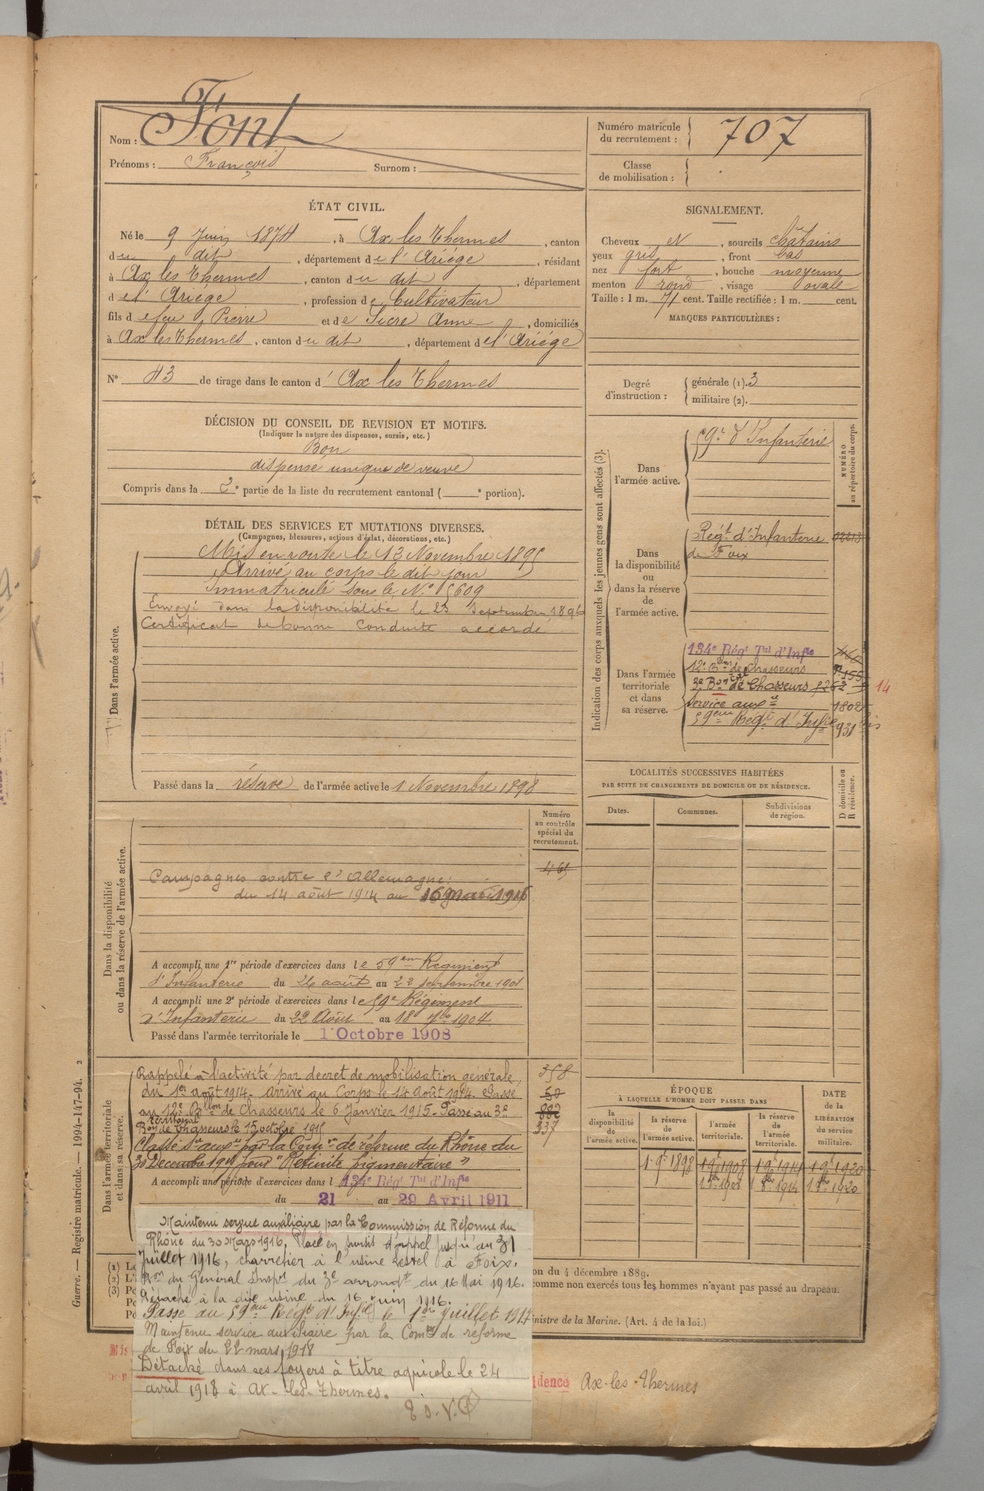 Nom : Font
Prénoms : François Surnom :
Numéro matricule du recrutement : 707
Classe de mobilisation :
ÉTAT CIVIL.
Né le 9 Juin 1874, à Ax les Thermes, canton
du dit, département de l'Ariège, résidant
à Ax les Thermes, canton du dit, département
de l'Ariège, profession de Cultivateur
fils de feu Pierre et de Sicre Anne, domiciliés
à Ax les Thermes, canton du dit, département de l'Ariège
N° 43 de tirage dans le canton d' Ax les Thermes
SIGNALEMENT.
Cheveux et, sourcils châtains
yeux gris, front bas
nez fort, bouche moyenne
menton rond, visage ovale
Taille : 1 m. 71 cent. Taille rectifiée : 1 m. cent.
MARQUES PARTICULIÈRES :
Degré d'instruction : générale (1). 3
militaire (2).
DÉCISION DU CONSEIL DE REVISION ET MOTIFS.
(Indiquer la nature des dispenses, sursis, etc.)
Bon
dispense unique de veuve
Compris dans la 2e partie de la liste du recrutement cantonal ( e portion).
DÉTAIL DES SERVICES ET MUTATIONS DIVERSES.
(Campagnes, blessures, actions d'éclat, décorations, etc.)
Dans l'armée active.
Mis en route le 13 Novembre 1895
Arrivé au corps le dit jour
Immatriculé sous le N°
Envoyé dans la disponibilité le 23 Septembre 1896
Certificat de bonne conduite accordé
Passé dans la réserve de l'armée active le 1 Novembre 1898
Indication des corps auxquels les jeunes gens sont affectés (3).
NUMÉRO au répertoire du corps.
Dans l'armée active.
59e d'Infanterie
Dans la disponibilité ou dans la réserve de l'armée active.
Régt d'Infanterie
de Foix
Dans l'armée territoriale et dans sa réserve.
134e Régt Tal d'Infie
12e Bon de Chasseurs
3e Bon de Chasseurs
14
Service auxre
59eme Régt d'Infie 931 bis
LOCALITÉS SUCCESSIVES HABITÉES
PAR SUITE DE CHANGEMENTS DE DOMICILE OU DE RÉSIDENCE.
Dates. Communes. Subdivisions de région.
D domicile ou R résidence.
Numéro au contrôle spécial du recrutement.
Dans la disponibilité ou dans la réserve de l'armée active.
Campagnes contre l'Allemagne :
du 14 août 1914 au 16 mai 1916
A accompli une 1re période d'exercices dans le 59eme Régiment
d'Infanterie du 26 août au 22 septembre 1901
A accompli une 2e période d'exercices dans le 59e Régiment
d'Infanterie du 22 Août au 18 7bre 1904.
Passé dans l'armée territoriale le 1 Octobre 1908
Dans l'armée territoriale et dans sa réserve.
Rappelé à l'activité par décret de mobilisation générale
du 1er août 1914. arrivé au Corps le 14 Août 1914. Passé
au 12e Bellon de Chasseurs le 6 Janvier 1915. Passé au 3e
territorial
Bon de Chasseurs le 15 octobre 1915
Classé s. aux. par la Coon de réforme du Rhône du
30 Décembre 1915 pour "Rétinite pigmentaire"
358
337
A accompli une période d'exercices dans l 134e Régt Tal d'Infie
du 21 au 29 Avril 1911
Maintenu service auxiliaire par la Commission de Réforme du
Rhône du 30 Mars 1916. Placé en sursis d'appel jusqu'au 31
Juillet 1916, charretier à l'usine à Foix.
Don du Général Inspr du 3e arrondt du 16 Mai 1916.
Détaché à la dite usine du 16 Juin 1916.
Passé au 59eme Régt d'Infie le 1er Juillet 1917
Maintenu service auxiliaire par la Comon de réforme
de Foix du 22 mars 1918
Détaché dans ses foyers à titre agricole le 24
avril 1918 à Ax-les-Thermes.
ÉPOQUE
À LAQUELLE L'HOMME DOIT PASSER DANS
la disponibilité de l'armée active. la réserve de l'armée active. l'armée territoriale. la réserve de l'armée territoriale.
DATE de la LIBÉRATION du service militaire.
1 9e 1898 1 9e 1908 1 9e 1914 1 9e 1920
on du 4 décembre 1889.
comme non exercés tous les hommes n'ayant pas passé au drapeau.
inistre de la Marine. (Art. 4 de la loi.)
idence Ax-les-Thermes
Guerre. — Registre matricule. — 1994-147-94. 2